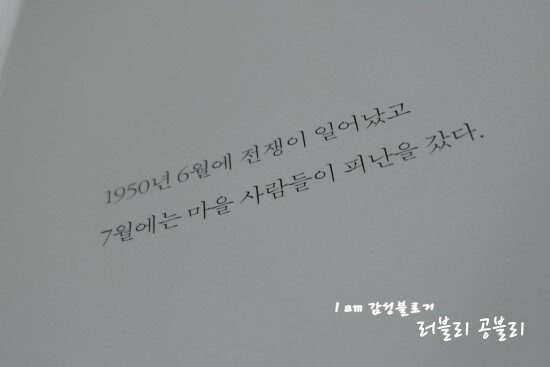 1950년 6월에 전쟁이 일어났고
7월에는 마을 사람들이 피난을 갔다.
I am 감성블로거
러블리 공블리